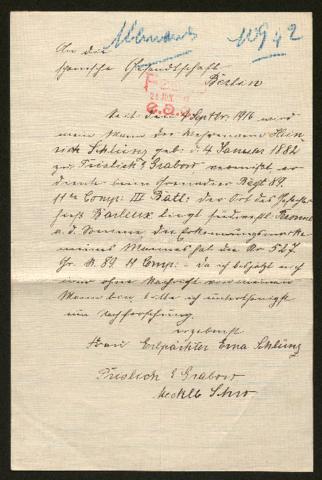 An die
spanische Gesandtschaft
Berlin
Seit dem 4 Septbr 1916 wird
mein Mann der Wehrmann Hein
rich Schlünz geb. d. 4 Januar 1882
zu b Grabow vermißt er
diente beim Grenadier Regt 89.
11te Comp: III Batl: der Ort des
Barleux liegt Peronne
a d. Somme die Erkennungsmarke
meines Mannes hat die No 527
Gr. R. 89 11 Comp: - da ich bis jetzt noch
ohne Nachricht von meinem
Mann bin bitte ich unterthänigst
um Nachforschung.
ergebenst
Frau Erbpächter Erna Schlünz
b Grabow
Mecklb Schw